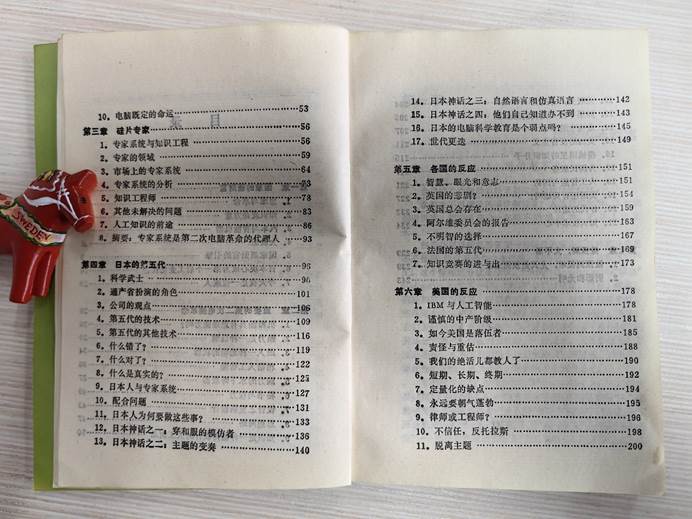 10. 电脑既定的命运 53
第三章 硅片专家 56
1. 专家系统与知识工程 56
2. 专家的领域 59
3. 市场上的专家系统 64
4. 专家系统的分析 73
5. 知识工程师 78
6. 其他未解决的问题 83
7. 人工知识的前途 86
8. 摘要：专家系统是第二次电脑革命的代理人 93
第四章 日本的第五代 96
1. 科学武士 96
2. 通产省扮演的角色 101
3. 公司的观点 106
4. 第五代的技术 109
5. 第五代的其他技术 116
6. 什么错了？ 119
7. 什么对了？ 122
8. 什么是真实的？ 125
9. 日本人与专家系统 127
10. 配合问题 131
11. 日本人为何要做这些事？ 133
12. 日本神话之一：穿和服的模仿者 136
13. 日本神话之二：主题的变奏 140
14. 日本神话之三：自然语言和仿真语言 142
15. 日本神话之四：他们自己知道办不到 143
16. 日本的电脑科学教育是个弱点吗？ 145
17. 世代更迭 149
第五章 各国的反应 151
1. 智慧、眼光和意志 151
2. 英国的悲剧？ 154
3. 英国总会存在 159
4. 阿尔维委员会的报告 163
5. 不明智的选择 167
6. 法国的第五代
7. 知识竞赛的进与出 173
第六章 美国的反应 178
1. IBM与人工智能 178
2. 谨慎的中产阶级 181
3. 如今美国是落伍者 185
4. 责任与重估 188
5. 我们的绝活儿都教人了 190
6. 短期、长期、终期 192
7. 定量化的缺点 194
8. 永远要朝气蓬勃 195
9. 律师或工程师？ 196
10. 不信任，反托拉斯 198
11. 脱离主题 200
SWEDEN